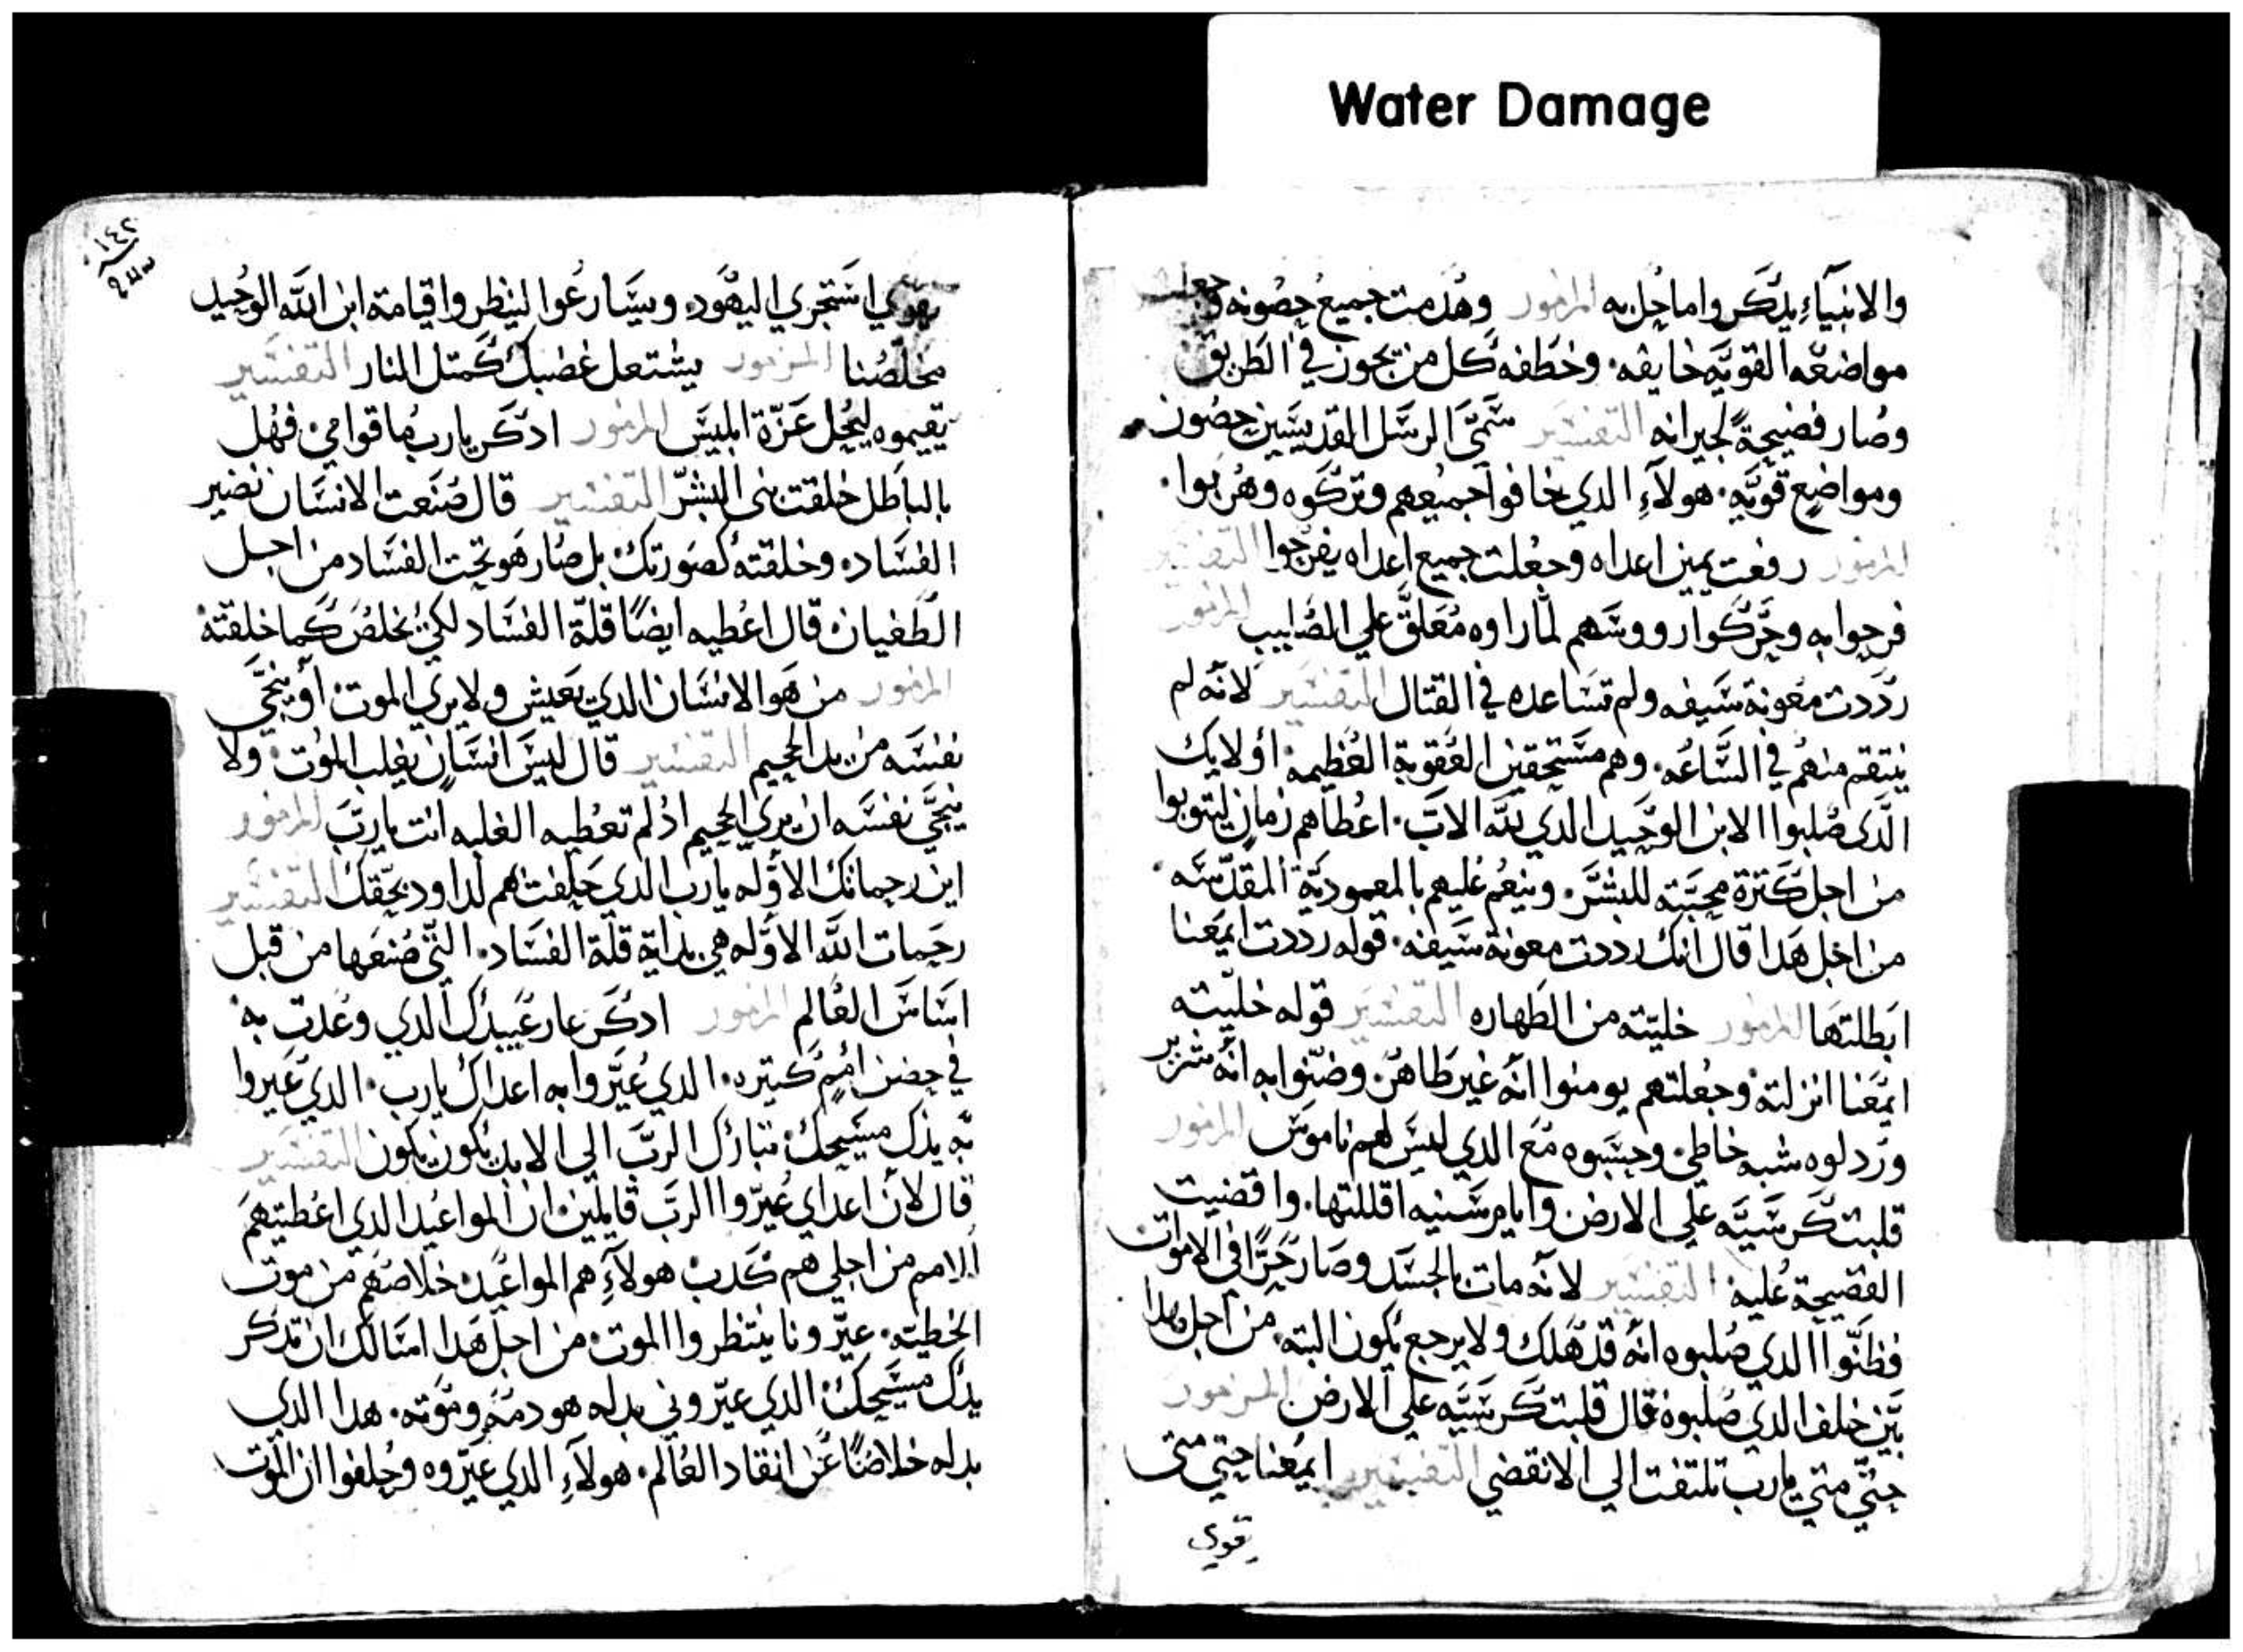 Water Damage
والانبياء يدكر واما حل به المزمور وهدمت جميع حصونه وجعلت
مواضعه القويه خايفه. وخطفه كل من يجوز في الطريق
وصار فضيحة لجيرانه التفسير سمي الرسل القديسين حصون
ومواضع قويه. هولآء الدي خافوا جميعهم وتركوه وهربوا.
المزمور رفعت يمين اعداه وجعلت جميع اعداه يفرحوا التفسير
فرحوا به وحركوا رووسهم لما راوه معلق علي الصليب المزمور
رددت معونة سيفه ولم تساعده في القتال التفسير لانه لم
ينتقم منهم في الساعه. وهم مستحقين العقوبة العظيمه اولايك
الدى صلبوا الابن الوحيد الدي لله الاب. اعطاهم زمان ليتوبوا
من اجل كترة محبته للبشر. وينعم عليهم بالمعمودية المقدسه.
من اجل هدا قال انك رددت معونة سيفه. قوله رددت ايمعنا
ابطلتها المزمور خليته من الطهاره التفسير قوله خليته
ايمعنا انزلته وجعلتهم يومنوا انه غير طاهر. وضنوا به انه شرير
وردلوه شبه خاطي وحسبوه مع الدي ليس لهم ناموس المزمور
قلبت كرسيه علي الارض وايام سنيه اقللتها. وافضيت
الفضيحة عليه التفسير لانه مات بالجسد وصار حرا في الاموات
فظنوا الدي صلبوه انه قد هلك ولا يرجع يكون البته. من اجل هدا
بين خلف الدي صلبوه قال قلبت كرسيه علي الارض المزمور
حتي متي يارب تلتفت الي الانقضي التفسير ايمعنا حتي متى
تقوي
١٤٢
تقوي استجري اليهود. ويسارعوا لينظروا قيامة ابن الله الوحيد
مخلصنا المزمور يشتعل غضبك كمتل النار التفسير
يقيموه ليحل عزة ابليس المزمور ادكر يارب ما قوامي. فهل
بالباطل خلقت بنى البشر التفسير قال صنعت الانسان نضير
الفساد. وخلقته كصورتك. بل صار هو تحت الفساد من اجل
الطغيان. قال اعطيه ايضا قلة الفساد لكي يخلص كما خلقته
المزمور من هو الانسان الدي يعيش ولا يري الموت. او ينجي
نفسه من يد الجحيم التفسير قال ليس انسان يغلب الموت. ولا
ينجي نفسه ان يرى الجحيم اد لم تعطيه الغلبه انت يارب المزمور
اين رحماتك الاوله يارب الدي حلفت هم لداود بحقك التفسير
رحمات الله الاوله هي بداية قلة الفساد. التي صنعها من قبل
اساس العالم المزمور ادكر عار عبيدك الدي وعدت به
في حضن امم كتيره. الدي عيروا به اعداك يارب. الدي عيروا
به يدك مسيحك. تبارك الرب الي الابد يكون يكون التفسير
قال لان اعداي عيروا الرب قايلين ان المواعيد الدي اعطيتهم
الامم من اجلي هم كدب. هولآء هم المواعيد. خلاصهم من موت
الخطيه. عيرونا ينتظروا الموت. من اجل هدا اسالك ان تدكر
يدك مسيحك. الدي عيروني بدله هو دمه وموته. هدا الدي
بدله خلاصا عن انقاد العالم. هولآء الدي عيروه وحلفوا ان الموت